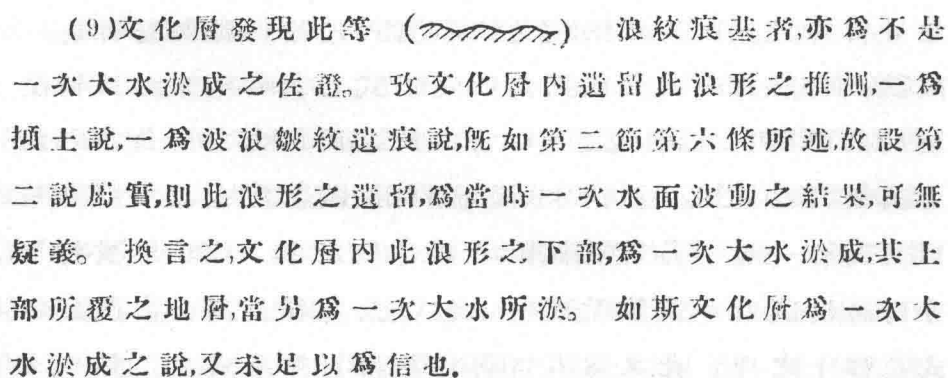 (9)文化層發現此等()浪紋痕基者,亦爲不是
一次大水淤成之佐證。攷文化層內遺留此浪形之推測,一爲
擲土說,一爲波浪皺紋遺痕說,旣如第二節第六條所述.故設第
二說屬實,則此浪形之遺留爲當時一次水面波動之結果,可無
疑義。換言之,文化層內此浪形之下部,爲一次大水淤成,其上
部所覆之地層,當另爲一次大水所淤。如斯文化層爲一次大
水淤成之說,又未足以爲信也.